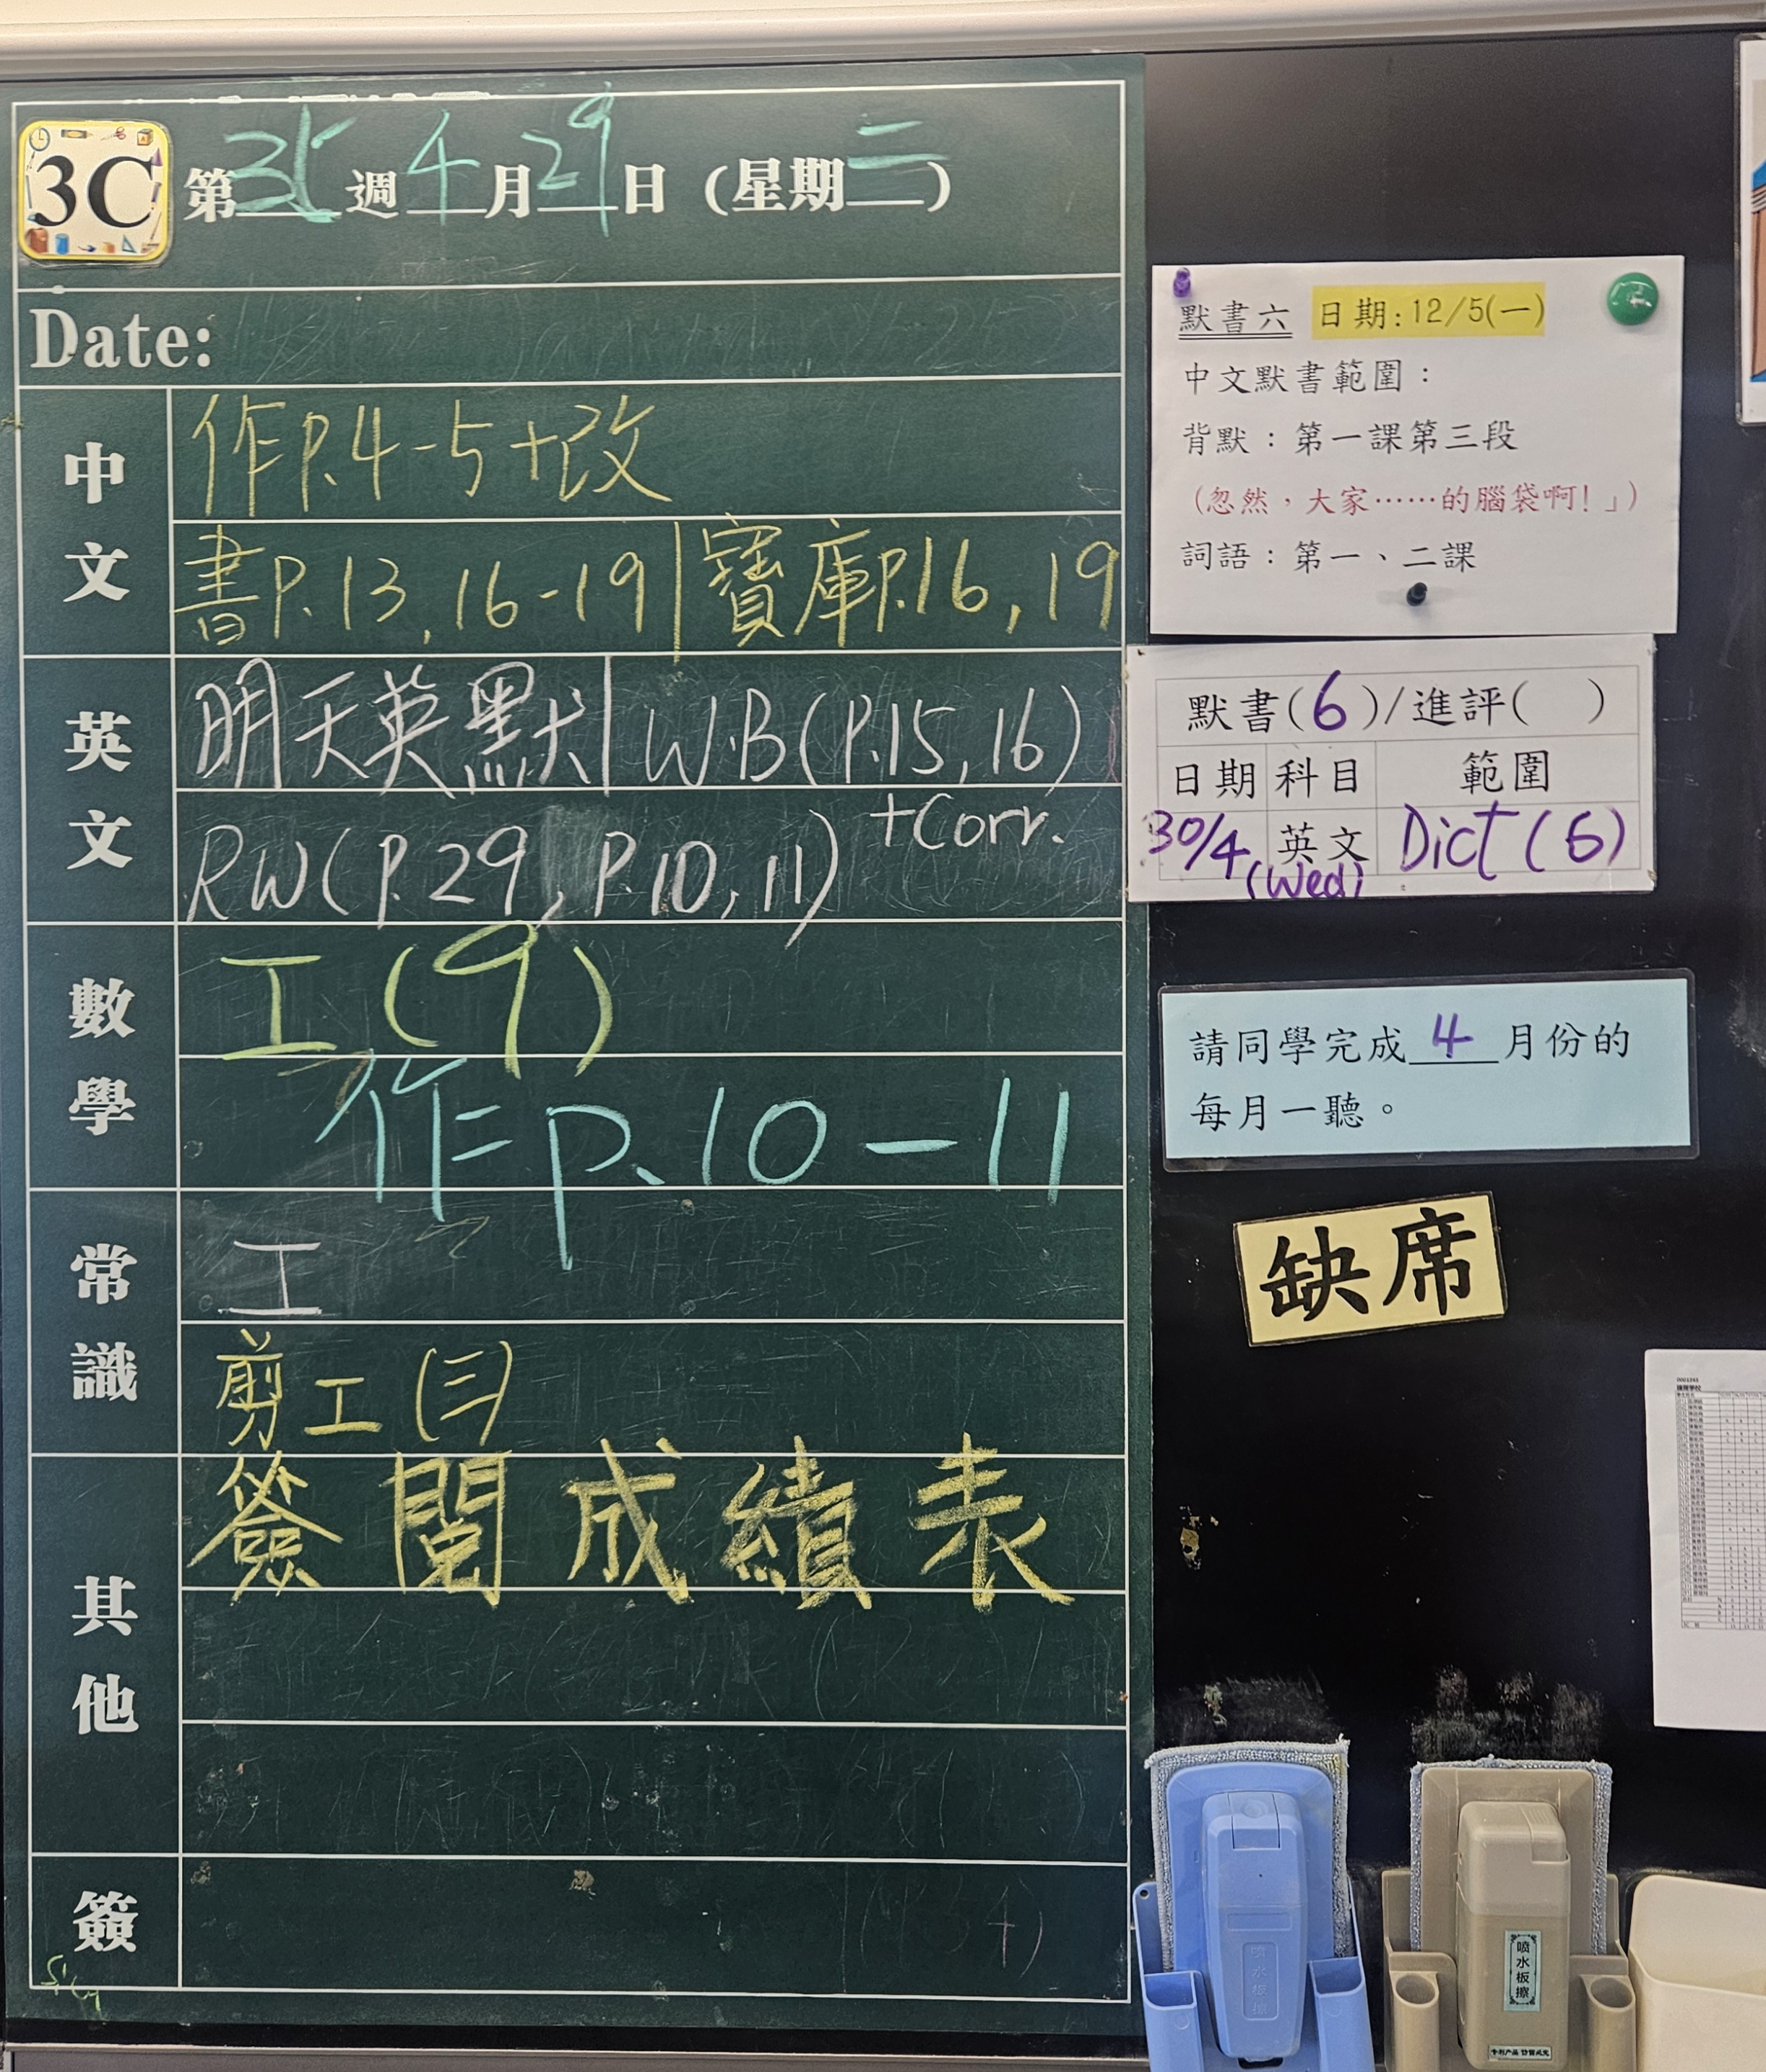 3C 第35週4月29日（星期二）
Date:
中文
作P.4-5+改
書P.13, 16-19 | 寶庫P.16, 19
英文
明天英默 | W.B(P.15, 16)
RW(P.29, P.10, 11) +Corr.
數學
工(9)
作P.10-11
常識
工
剪工(三)
其他
簽閱成績表
簽
默書六 日期:12/5(一)
中文默書範圍：
背默：第一課第三段
（忽然，大家……的腦袋啊！」）
詞語：第一、二課
默書(6)/進評( )
日期 科目 範圍
30/4 (Wed) 英文 Dict(6)
請同學完成4月份的
每月一聽。
缺席
喷水板擦